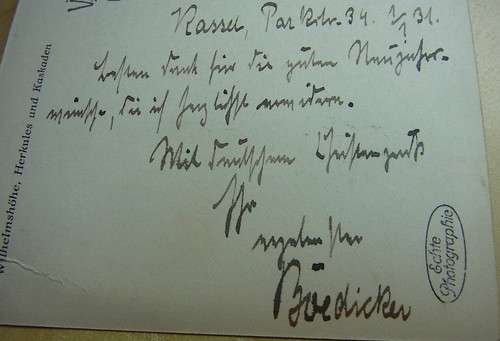 Kassel, Parkstr. 34. 1/1 31.
Besten Dank für die guten Neujahrs-
wünsche, die ich herzlichst erwidere.
Mit deutschem
Ihr
ergebenster
Boedicker
Wilhelmshöhe, Herkules und Kaskaden
Echte
Photographie